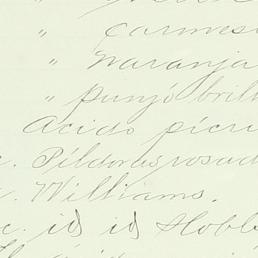 " carmes
" naranja
" punjó brill
Acido pícri
Píldoras rosad
Williams.
id id Hobb